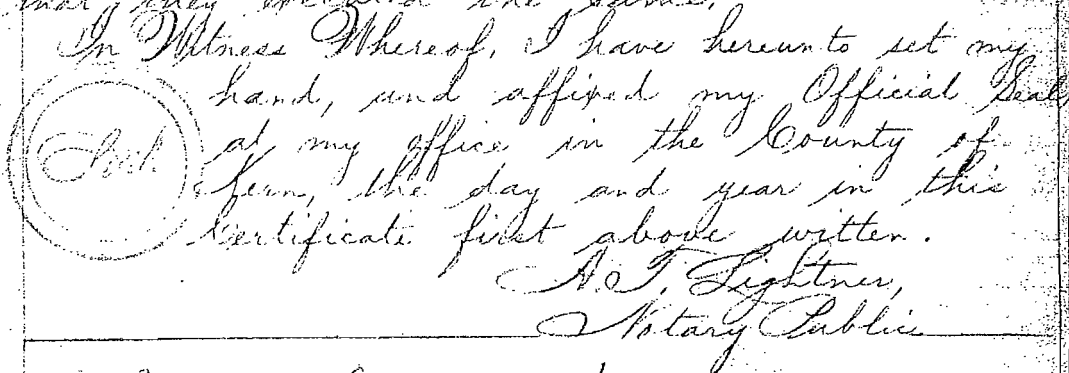 that they executed the same.
In Witness Whereof, I have hereunto set my
hand, and affixed my Official Seal
at my office in the County of
Seal
Kern, the day and year in this
Certificate first above written.
A. T. Lightner,
Notary Public